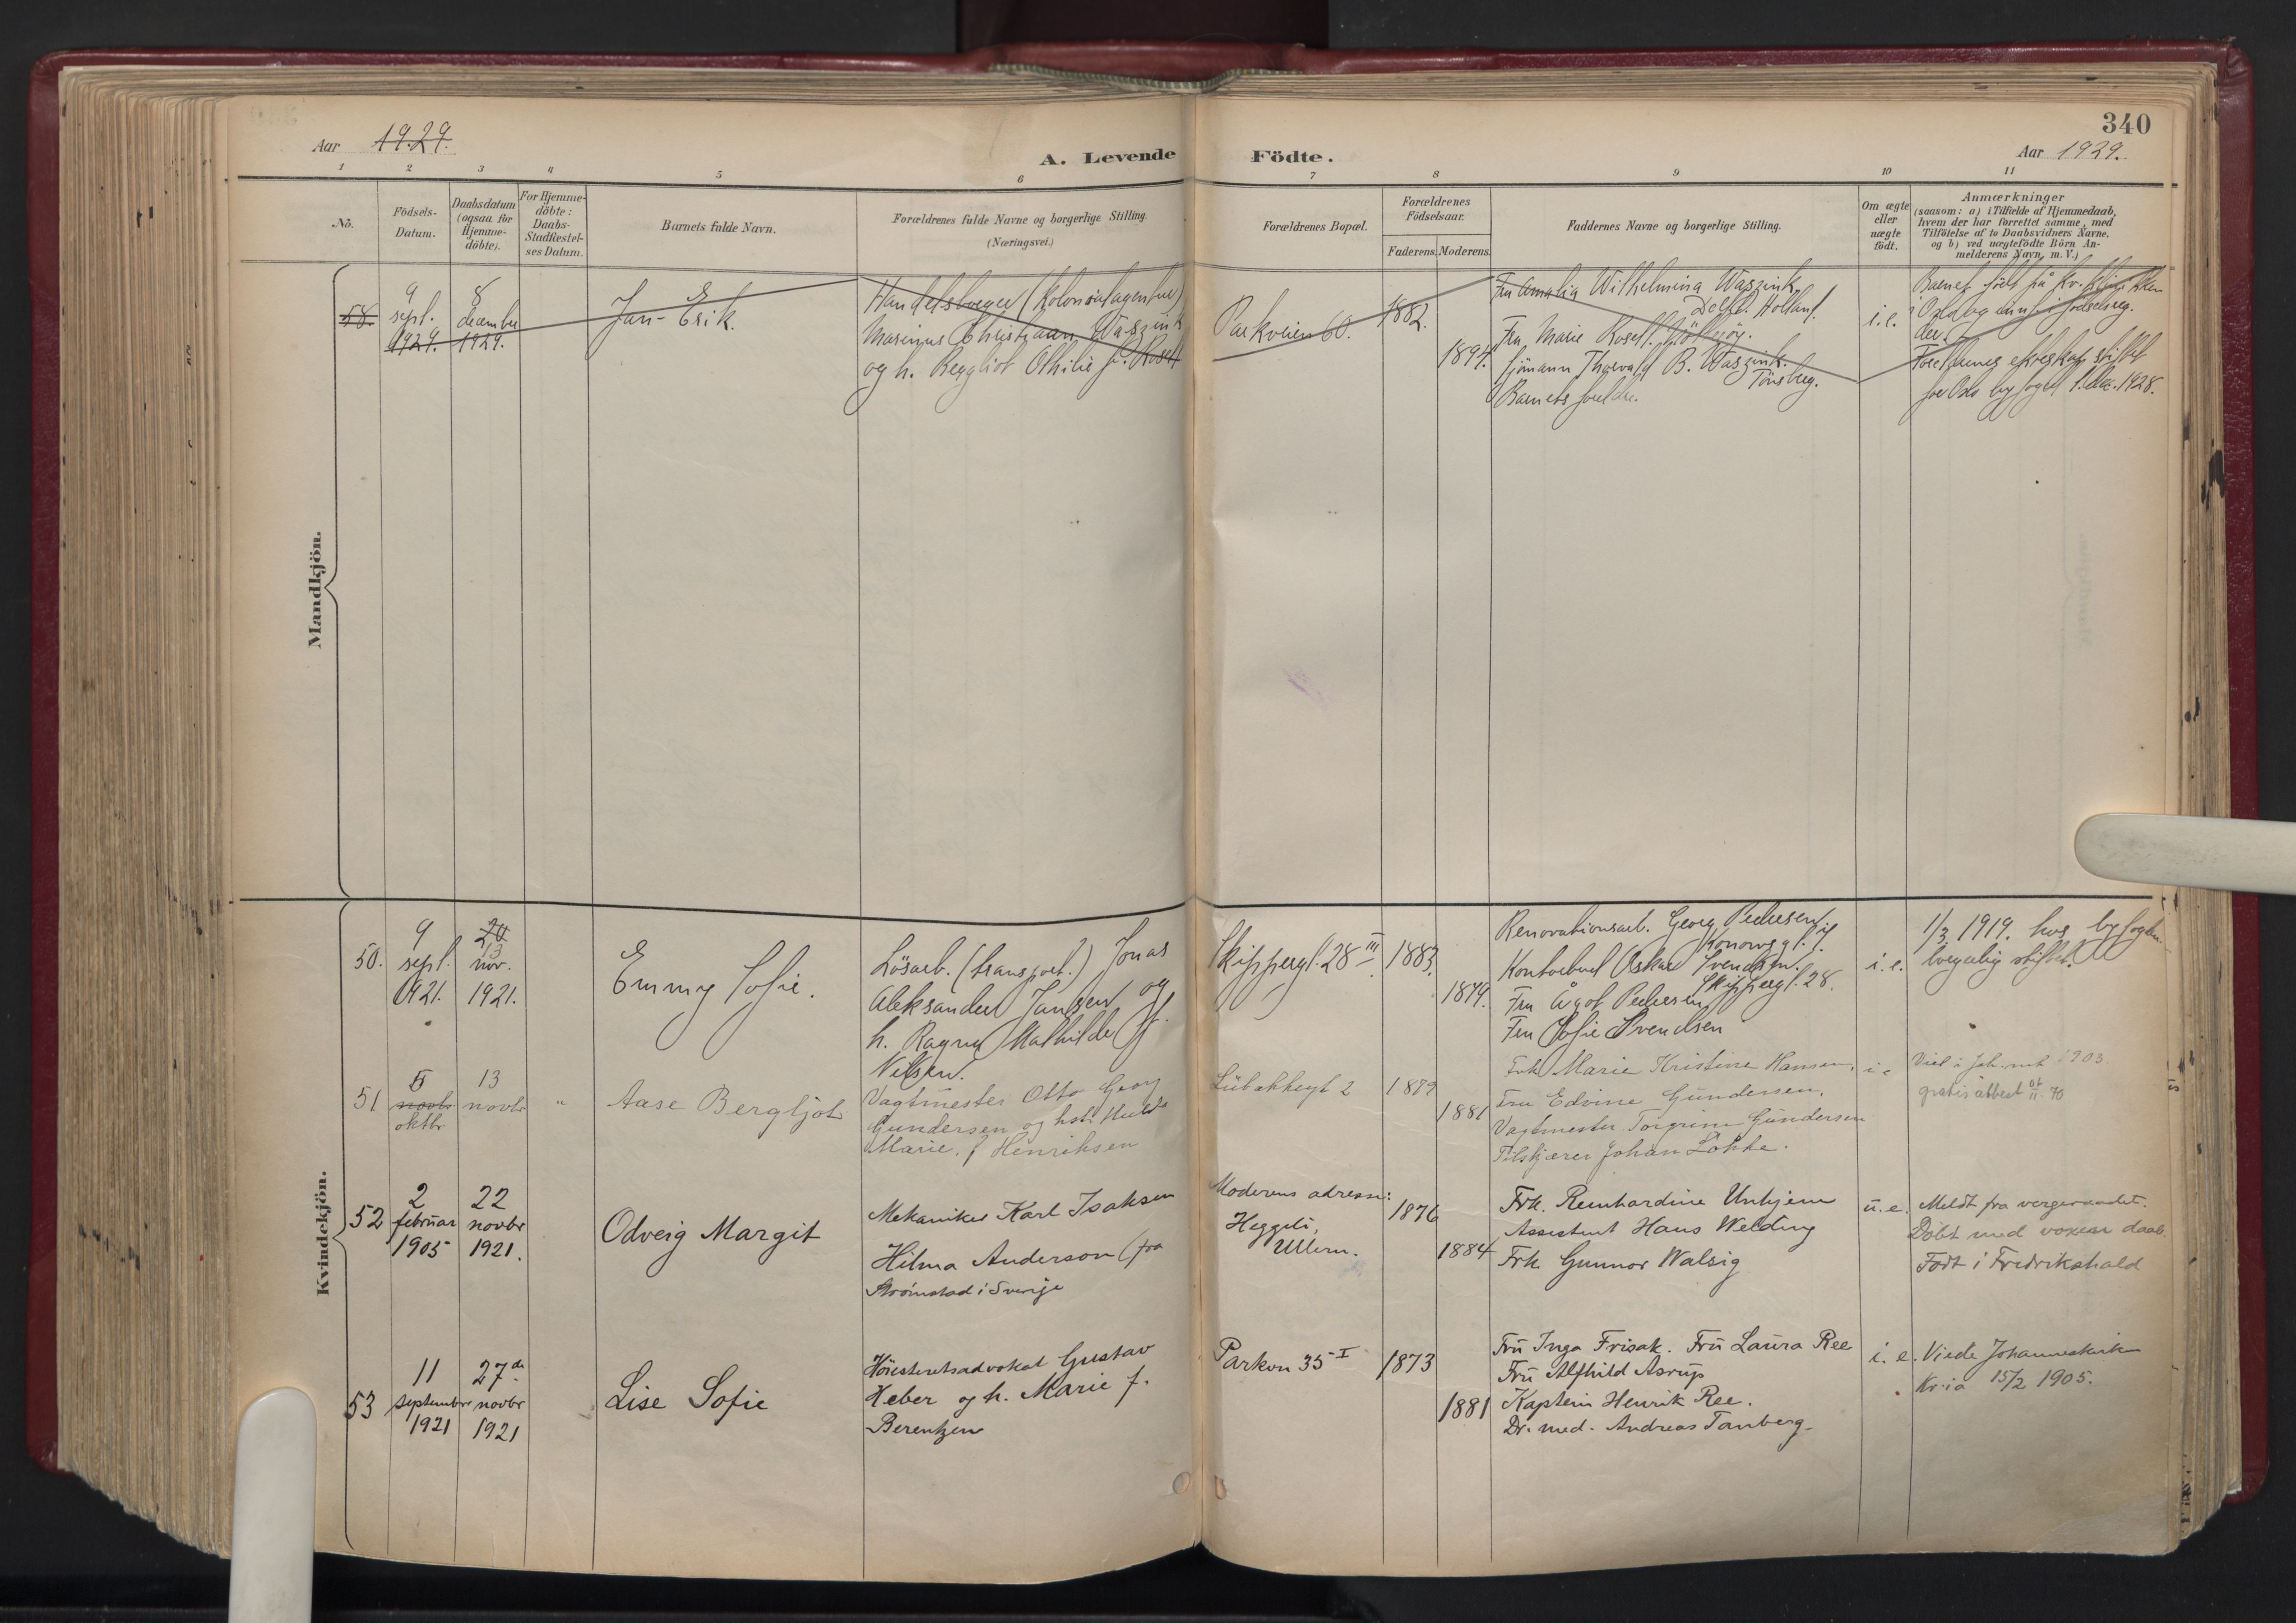 340
Aar 1929.
A. Levende Födte.
Aar 1929.
1 2 3 4 5 6 7 8 9 10 11
No.
Födsels-
Datum.
Daabsdatum
(ogsaa for
Hjemme-
döbte).
For Hjemme-
döbte:
Daabs-
Stadfæstel-
ses Datum.
Barnets fulde Navn.
Forældrenes fulde Navne og borgerlige Stilling.
(Næringsvei.)
Forældrenes Bopæl.
Forældrenes
Födselsaar.
Faderens. Moderens.
Faddernes Navne og borgerlige Stilling.
Om ægte
eller
uægte
født.
Anmærkninger
(saasom: a) i Tilfælde af Hjemmedaab,
hvem der har forrettet samme, med
Tilföielse af to Daabsvidners Navne,
og b) ved uægtefödte Börn An-
melderens Navn m. V.)
Mandkjön.
58.
9
sept.
1929.
8
december
1929.
Jan-Erik.
(Kolonialagentur)
Marinus Christiaan Waszink
og h. Othilie f. Rosell
Parkveien 60.
1882.
1894.
Fru Amalia Wilhelmina Waszink,
Delft. Holland.
Fru Marie Rosell.
Sjömann Thorvald B. Waszink.
Tönsberg.
Barnets foreldre.
i.e.
Barnet födt på
i Oslo
Foreldrenes ekteskap stiftet
for Oslo byfoged 1. dec. 1928.
Kvindekjön.
50.
9
sept.
1921.
20
13
nov.
1921.
Emmy Sofie.
Lösarb. (transport.) Jonas
Aleksander Jansen og
h. Ragna Mathilde f.
Nilsen.
Skipperg. 28 III
1883.
1879.
Renovationsarb. Georg Pedersen,
Konowsg.
Kontorbud Oskar Svendsen.
Skipperg. 28.
Fru Ågot Pedersen
Fru Sofie Svendsen
i.e.
1/3 1919. hos byfogden
borgerlig stiftet.
51
5
novbr
oktbr
13
novbr
"
Aase Bergljot
Vagtmester Otto Georg
Gundersen og hst. Hulda
Marie, f Henriksen
Lübekkergt 2
1879
1881
Frk Marie Kristine Hansen,
Fru Edvine Gundersen.
Vagtmester Torgrim Gundersen
Pilskjærer Johan Lökke.
i e
Viet i Joh. 1903
gratis attest
52
2
februar
1905
22
novbr
1921.
Odveig Margit
Mekaniker Karl Isaksen
Hilma Anderson (fra
Strömstad i Sverige
Moderens adresse:
Heggeli,
Ullern.
1876
1884
Frk. Reinhardine Unhjem
Assistent Hans Welding
Frk Gunnor Walsig
u. e.
Meldt fra vergeraadet.
Döbt med voxen daab.
Født i Fredrikshald
53
11
september
1921
27de
novbr
1921
Lise Sofie
Høiesteretsadvokat Gustav
Heber og h. Marie f.
Berentzen
Parkvn 35 I
1873
1881
Fru Inga Frisak. Fru Laura Ree
Fru Alfhild Astrup
Kaptein Henrik Ree.
Dr. med. Andreas Tanberg.
i. e.
Viede Johanneskirk
Kr:ia 15/2 1905.